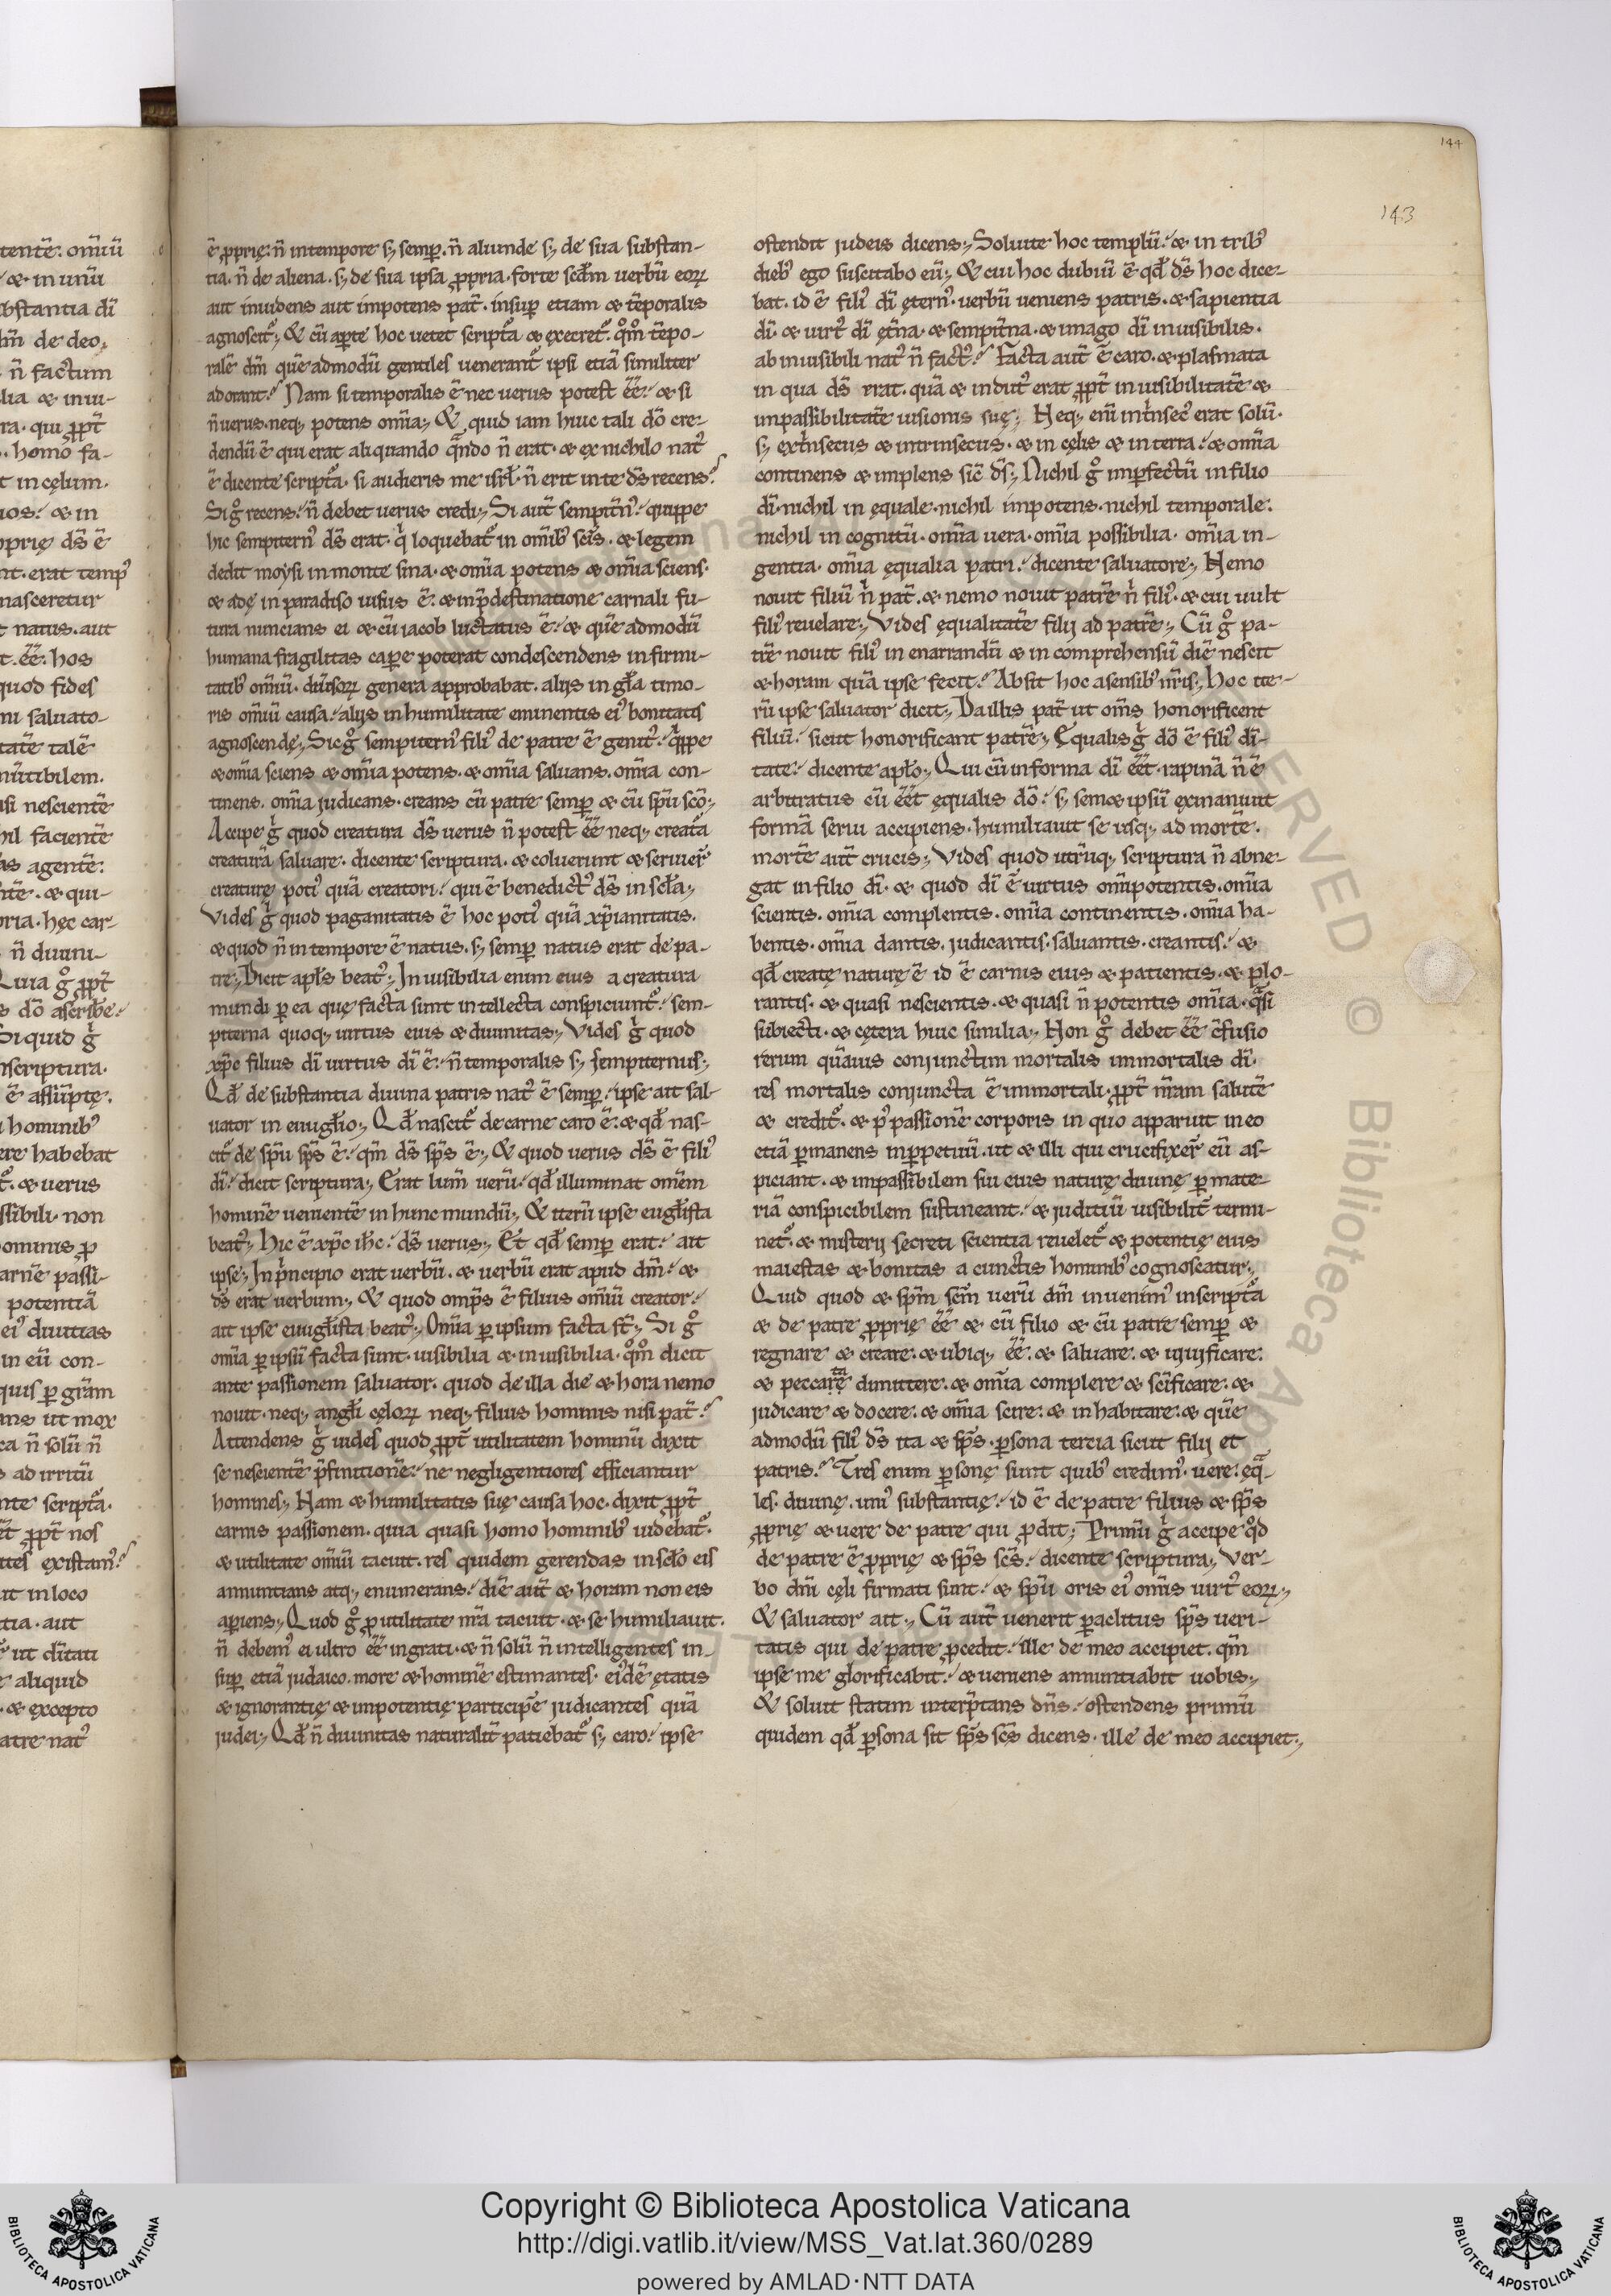 144
143
ē ꝓprię. n̄ in tempore s; semꝑ. n̄ aliunde s; de sua substan-
tia. n̄ de aliena. s; de sua ipsa ꝓpria. forte scd̄m uerbū eoꝝ
aut inuidens aut impotens pat̄. insuꝑ etiam & tēporalis
agnoscit᷑; & cū aꝑte hoc uetet script᷑a & execret᷑. qm̊ tēpo-
ralē dm̄ quē admodū gentiles uenerant᷑ ipsi etiā similiter
adorant. Nam si temporalis ē nec uerus potest ēē. & si
n̄ uerus. neq; potens om̄ia; & quid iam huic tali dō cre-
dendū ē qui erat aliquando qᷓndo n̄ erat. & ex nichilo nat᷒
ē dicente script᷑a. si audieris me isrł. n̄ erit in te ds̄ recens.
Si gͦ recens. n̄ debet uerus credi; Si aut̄ sempit̄n᷒. quippe
hic sempitern᷒ ds̄ erat. qͥ loquebat᷑ in om̄ib᷒ scīs. & legem
dedit moysi in monte sina. & om̄ia potens & om̄ia sciens.
& adę in paradiso uisus ē. & in p̄destinatione carnali fu-
tura nuncians ei & cū iacob luctatus ē. & quē admodū
humana fragilitas caꝑe poterat condescendens infirmi-
tatib᷒ om̄iū. diūsoꝝ genera approbabat. alijs in gła timo-
ris om̄iū causa. alijs in humilitate eminentis ei᷒ bonitatis
agnoscendę; Sic gͦ sempitern᷒ fili᷒ de patre ē genit᷒. qͥppe
& om̄ia sciens & om̄ia potens. & om̄ia saluans. om̄ia con-
tinens. om̄ia judicans. creans cū patre semꝑ & cū spū scō;
Accipe gͥ quod creatura ds̄ uerus n̄ potest ēē neq; creat᷑a
creaturā saluare. dicente scriptura. & coluerunt & seruier̄
creaturę poti᷒ quā creatori. qui ē benedict᷒ ds̄ in scła;
Vides gͥ quod paganitatis ē hoc poti᷒ quā xp̄ianitatis.
& quod n̄ in tempore ē natus. s; semꝑ natus erat de pa-
tre; Dicit apłs beat᷒; Inuisibilia enim eius a creatura
mundi ꝑ ea quę facta sunt intellecta conspiciunt᷑. sem-
piterna quoq; uirtus eius & diuinitas; Vides gͥ quod
xp̄c filius dī uirtus dī ē. n̄ temporalis s; sempiternus;
Qd̄ de substantia diuina patris nat᷒ ē semꝑ. ipse ait sal-
uator in euuglīo; Qd̄ nascit᷑ de carne caro ē. & qd̄ nas-
cit᷑ de spū sps̄ ē. qm̄ ds̄ sps̄ ē; & quod uerus ds̄ ē fili᷒
dī. dicit scriptura; Erat lum̄ uerū. qd̄ illuminat om̄em
hominē uenientē in hunc mundū; & iterū ipse euglīsta
beat᷒; Hic ē xp̄c ihc̄. ds̄ uerus; Et qd̄ semꝑ erat. ait
ipse; In pͥncipio erat uerbū. & uerbū erat apud dm̄. &
ds̄ erat uerbum; & quod omp̄s ē filius om̄iū creator.
ait ipse euuglīsta beat᷒; Om̄ia ꝑ ipsum facta st̄; Si gͦ
om̄ia ꝑ ipsū facta sunt. uisibilia & inuisibilia. qm̊ dicit
ante passionem saluator. quod de illa die & hora nemo
nouit. neq; anglī cęloꝝ neq; filius hominis nisi pat̄.
Attendens gͥ uides quod ꝓpt̄ utilitatem hominū dixit
se nescientē p̄finitionē. ne negligentiores efficiantur
homines; Nam & humilitatis suę causa hoc. dixit ꝓpt̄
carnis passionem. quia quasi homo hominib᷒ uidebat᷑.
& utilitate om̄iū tacuit. res quidem gerendas in scło eis
annuntians atq; enumerans. diē aut̄ & horam non eis
aꝑiens; Quod gͦ ꝓ utilitate nr̄a tacuit. & se humiliauit.
n̄ debem᷒ ei ultro ēē ingrati. & n̄ solū n̄ intelligentes in-
suꝑ etiā judaico. more & hominē estimantes. ei᷒dē ętatis
& ignorantię & impotentię participē judicantes quā
judei; Qd̄ n̄ diuinitas naturalit̄ patiebat᷑ s; caro. ipse
ostendit judeis dicens; Soluite hoc templū. & in trib᷒
dieb᷒ ego suscitabo eū; & cui hoc dubiū ē qd̄ ds̄ hoc dice-
bat. id ē fili᷒ dī ętern᷒. uerbū ueniens patris. & sapientia
dī. & uirt᷒ dī ęt̄na. & sempit̄na. & imago dī inuisibilis.
ab inuisibili nat᷒ n̄ fact᷒. Facta aut̄ ē caro. & plasmata
in qua ds̄ erat. quā & indut᷒ erat ꝓpt̄ inuisibilitatē &
impassibilitatē uisionis suę; Neq; eni᷒ int̄nsec᷒ erat solū.
s; ext̄nsecus & intrinsecus. & in cęlis & in terra. & om̄ia
continens & implens sic̄ ds̄; Nichil gͦ imꝑfectū in filio
dī. nichil in equale. nichil impotens. nichil temporale.
nichil in cognitū. om̄ia uera. om̄ia possibilia. om̄ia in-
gentia. om̄ia ęqualia patri. dicente saluatore; Nemo
nouit filiū nͥ pat̄. & nemo nouit patrē nͥ fili᷒. & cui uult
fili᷒ reuelare; Vides ęqualitatē filij ad patrē; Cū gͦ pa-
trē nouit fili᷒ in enarrandū & in comprehensū diē nescit
& horam quā ipse fecit. Absit hoc a sensib᷒ nr̄is; Hoc ite-
rū ipse saluator dicit; Da illis pat̄ ut om̄s honorificent
filiū. sicut honorificant patrē; Equalis gͥ dō ē fili᷒ dī-
tate. dicente apło; Qui cū in forma dī ēēt. rapinā n̄ ē
arbitratus cū ēēt ęqualis dō. s; semet ipsū exinaniuit
formā serui accipiens. humiliauit se usq; ad mortē.
mortē aut̄ crucis; Vides quod ut̄ūq; scriptura n̄ abne-
gat in filio dī. & quod dī ē uirtus om̄ipotentis. om̄ia
scientis. om̄ia complentis. om̄ia continentis. om̄ia ha-
bentis. om̄ia dantis. judicantis. saluantis. creantis. &
qd̄ creatę naturę ē id ē carnis eius & patientis. & plo-
rantis. & quasi nescientis. & quasi n̄ potentis om̄ia. qᷓsi
subiecti. & cętera huic similia; Non gͦ debet ēē c̄fusio
rerum quāuis conjunctim mortalis immortalis dī.
res mortalis conjuncta ē immortali. ꝓpt̄ nr̄am salutē
& credit᷑. & p᷒ passionē corporis in quo apparuit in eo
etiā ꝑmanens inꝑpetuū. ut & illi qui crucifixer̄ eū as-
piciant. & impassibilem sui eius naturę diuinę ꝑ mate-
riā conspicibilem sustineant. & juditiū uisibilit̄ termi-
net᷑. & misterij secreti scientia reuelet᷑ & potentię eius
maiestas & bonitas a cunctis hominib᷒ cognoscatur;
Quid quod & spm̄ scm̄ uerū dm̄ inuenim᷒ in script᷑a
& de patre ꝓprię ēē & cū filio & cū patre semꝑ &
regnare & creare. & ubiq; ēē. & saluare. & uiuificare.
& peccata dimittere. & om̄ia complere & scīficare. &
judicare & docere. & om̄ia scire. & inhabitare. & quē
admodū fili᷒ ds̄ ita & sps̄. ꝑsona tercia sicut filij et
patris. Tres enim ꝑsonę sunt quib᷒ credim᷒. uere. ęqᷓ-
les. diuinę. uni᷒ substantię. id ē de patre filius & sps̄
ꝓprię & uere de patre qui ꝓdit; Primū gͥ accipe qd̊
de patre ē ꝓprię & sps̄ scs̄. dicente scriptura; Ver-
bo dnī cęli firmati sunt. & spū oris ei᷒ om̄is uirt᷒ eoꝝ;
& saluator ait; Cū aut̄ uenerit ꝑaclitus sps̄ ueri-
tatis qui de patre ꝓcedit. ille de meo accipiet. qm̄
ipse me glorificabit. & ueniens annuntiabit uobis;
& soluit statim interp̄tans dn̄s. ostendens primū
quidem qd̄ ꝑsona sit sps̄ scs̄ dicens. ille de meo accipiet;
Copyright © Biblioteca Apostolica Vaticana
http://digi.vatlib.it/view/MSS_Vat.lat.360/0289
powered by AMLAD·NTT DATA
BIBLIOTECA APOSTOLICA VATICANA
BIBLIOTECA APOSTOLICA VATICANA